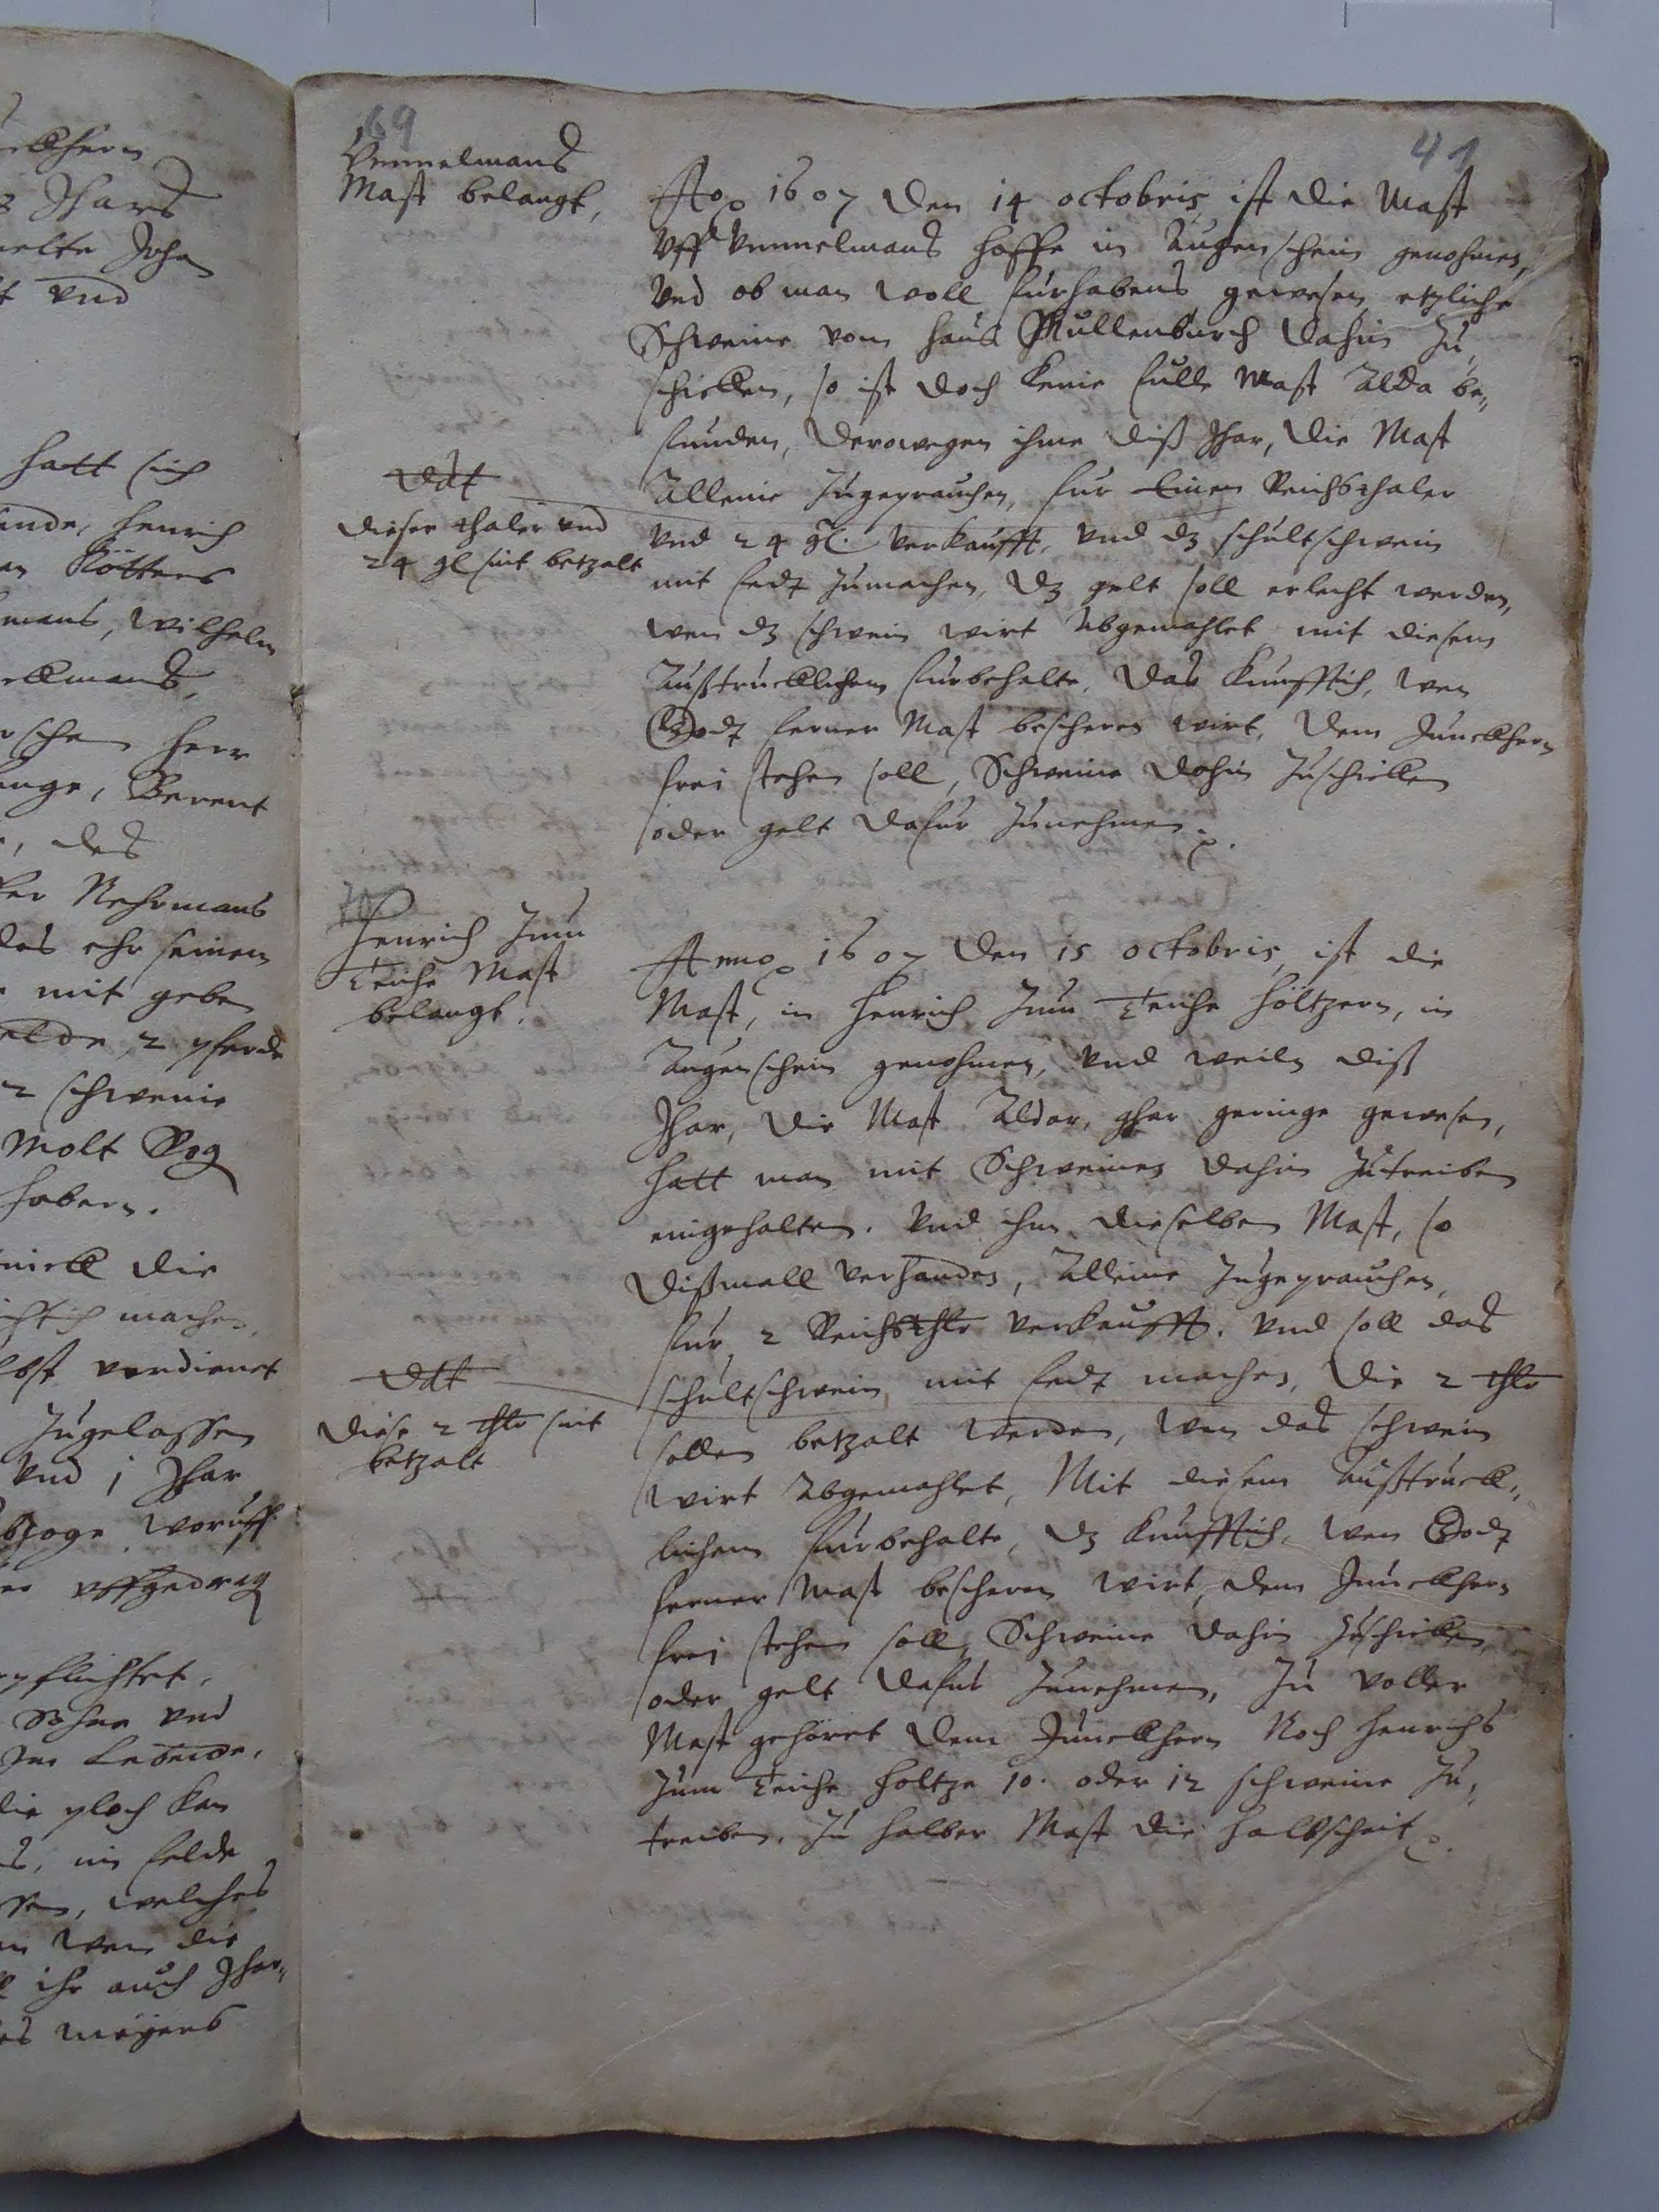 69
41
Vennelmans
Mast belangt,
Ao 1607 den 14 octobris ist die Mast
Vff Vennelmans hoffe in Augenschein genohmen,
Vnd ob man woll furhabens gewesen etzliche
Schweine vom haus Mullenburch dahin zu
schicken, so ist doch keine fulle Mast alda be„
funden, Derowegen ihme diß Jhar, die Mast
Alleine zugeprauchen, fur Einen Reichsthaler
Vnd 24 gl. verkaufft, vnd dz schultschwein
mit fedt zumachen, dz gelt soll erlecht werden,
wen dz schwein wirt Abgemahlet mit diesem
Außtrucklichem furbehalte, das kunfftich, wen
Godt ferner Mast bescheren wirt, dem Junckhern
frei stehen soll, Schweine dahin zuschicken
oder gelt dafur zunehmen.
ddt
dieser thaler vnd
24 gl sint betzalt
70
Henrich zum
Teiche Mast
belangt.
Anno 1607 den 15 octobris, ist die
Mast, in Henrich zum Teiche höltzern, in
Augenschein genohmen, vnd weiln diß
Jhar, die Mast Aldar, ghar geringe gewesen,
hatt man mit Schweinen dahin zutreiben
eingehalten. Vnd ihm dieselben Mast, so
dißmall verhanden, Alleine zugeprauchen,
fur 2 Reichsthlr verkaufft. Vnd soll das
schultschwein mit fedt machen, die 2 thlr
sollen betzalt werden, wen das schwein
wirt Abgemahlet, Mit diesem Außtruck„
lichem furbehalte, dz kunfftich, wen Godt
ferner Mast bescheren wirt, dem Junckhern
frei stehen soll, Schweine dahin zuschicken,
oder gelt dafur zunehmen, Zu voller
Mast gehöret dem Junckhern Noch Henrichs
zum Teiche holtze 10. oder 12 schweine zu„
treiben. Zu halber Mast die halbscheit.
ddt
diese 2 thlr sint
betzalt
Jhars
Johan
vnd
hatt sich
Henrich
Kötters
Wilhelm
herr
Berent
des
Nehrmans
das ehr seinen
mit geben
2 pferde
2 schweine
Molt Rog
habern.
die
machen,
verdienet
zugelassen
Vnd 1 Jhar
woruff
vffgedrag
Sohne vnd
die ploch kan
in felde
welches
wen die
ihr auch Jhar„
meyers